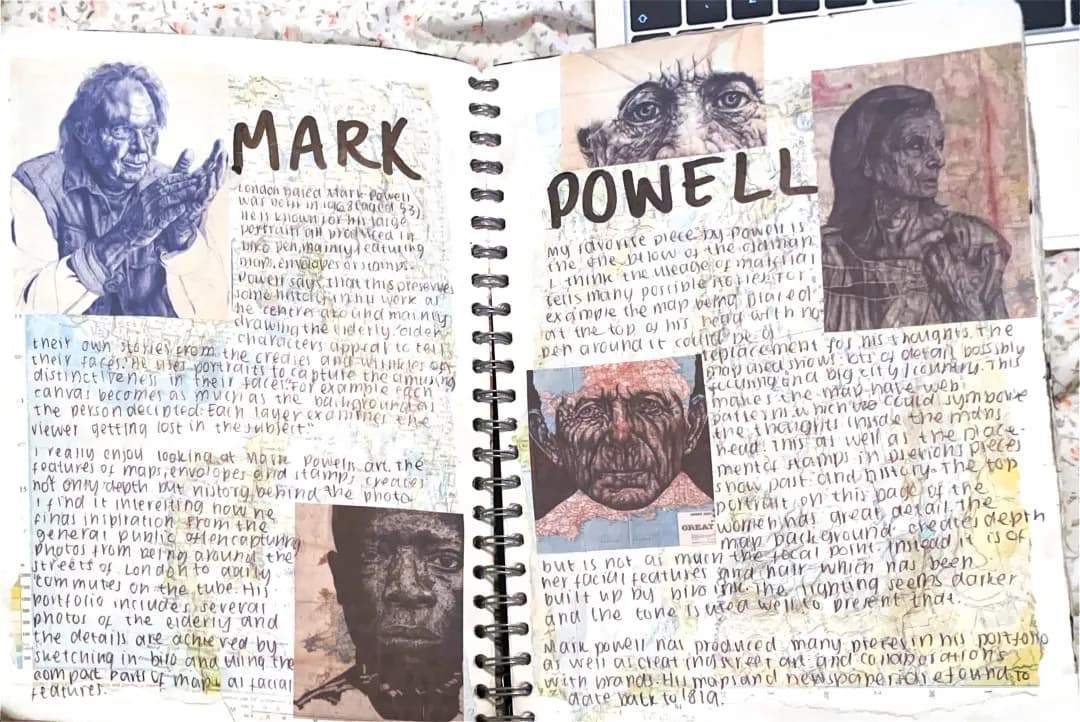 MARK
London based Mark Powell
was born in 1968 (aged 53).
He is known for his large
portraits all produced in
biro pen, mainly featuring
maps, envelopes or stamps.
Powell says that this preserves
some history in his work as
he centres around mainly
drawing the elderly. "older
characters appeal to tell
their own stories from the credies and wrinkles of
their faces." He uses portraits to capture the amusing
distinctiveness in their faces. "For example each
canvas becomes as much as the background as
the person decipted. Each layer examines the
viewer getting lost in the subject."
I really enjoy looking at Mark Powells art. The
features of maps, envelopes and stamps creates
not only depth but history behind the photo.
I find it interesting how he
finds inspiration from the
general public often capturing
photos from being around the
streets of London to daily
commutes on the tube. His
portfolio includes several
photos of the elderly and
the details are achieved by
sketching in biro and using the
compact parts of maps as facial
features.
POWELL
My favorite piece by Powell is
the one below of the old man.
I think the useage of material
tells many possible stories. For
example the map being placed
at the top of his head with no
pen around it could be a
replacement for his thoughts. The
map used shows lots of detail possibly
focusing on a big city/country. This
makes the map have web
patterns which could symbolise
the thoughts inside the mans
head. This as well as the place-
ment of stamps in previous pieces
show past and history. The top
portrait on this page of the
women has great detail. The
map background creates depth
but is not as much the focal point. Instead it is of
her facial features and hair which has been
built up by biro ink. The lighting seems darker
and the tone is used well to present that.
GREAT
Mark Powell has produced many pieces in his portfolio
as well as creating street art and collaborations
with brands. His maps and newspapers are found to
date back to 1819.